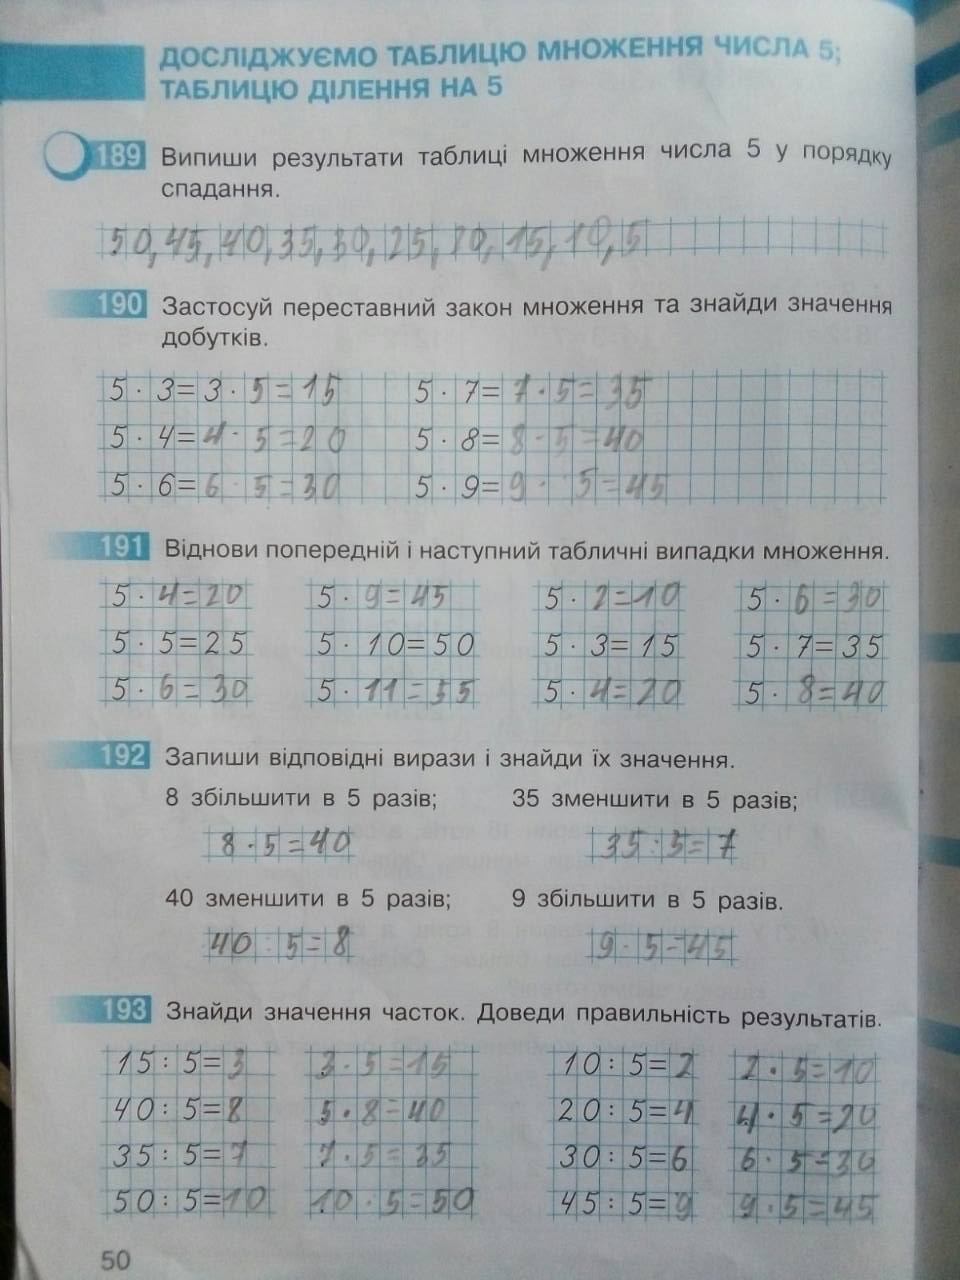 ДОСЛІДЖУЄМО ТАБЛИЦЮ МНОЖЕННЯ ЧИСЛА 5;
ТАБЛИЦЮ ДІЛЕННЯ НА 5
189 Випиши результати таблиці множення числа 5 у порядку
спадання.
50, 45, 40, 35, 30, 25, 20, 15, 10, 5
190 Застосуй переставний закон множення та знайди значення
добутків.
5 · 3 = 3 · 5 = 15 5 · 7 = 7 · 5 = 35
5 · 4 = 4 · 5 = 20 5 · 8 = 8 · 5 = 40
5 · 6 = 6 · 5 = 30 5 · 9 = 9 · 5 = 45
191 Віднови попередній і наступний табличні випадки множення.
5 · 4 = 20 5 · 9 = 45 5 · 2 = 10 5 · 6 = 30
5 · 5 = 25 5 · 10 = 50 5 · 3 = 15 5 · 7 = 35
5 · 6 = 30 5 · 11 = 55 5 · 4 = 20 5 · 8 = 40
192 Запиши відповідні вирази і знайди їх значення.
8 збільшити в 5 разів; 35 зменшити в 5 разів;
8 · 5 = 40 35 : 5 = 7
40 зменшити в 5 разів; 9 збільшити в 5 разів.
40 : 5 = 8 9 · 5 = 45
193 Знайди значення часток. Доведи правильність результатів.
15 : 5 = 3 3 · 5 = 15 10 : 5 = 2 2 · 5 = 10
40 : 5 = 8 5 · 8 = 40 20 : 5 = 4 4 · 5 = 20
35 : 5 = 7 7 · 5 = 35 30 : 5 = 6 6 · 5 = 30
50 : 5 = 10 10 · 5 = 50 45 : 5 = 9 9 · 5 = 45
50